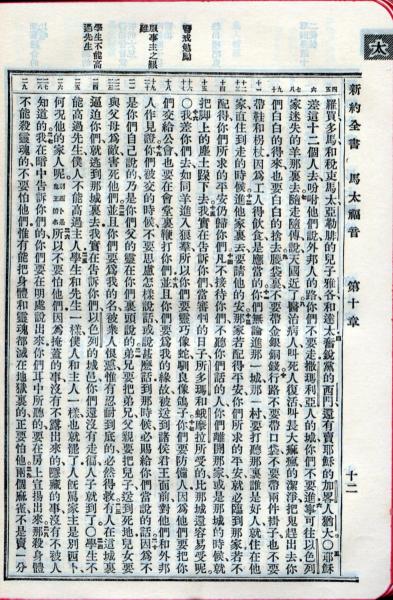 太
新約全書 馬太福音 第十章 十二
警戒勉勵
服事主之艱難
學生不能高過先生
羅買多馬和稅吏馬太亞勒腓的兒子雅各和達太奮銳黨的西門還有賣耶穌的加畧人猶大〇耶穌
差這十二個人去吩咐他們說外邦人的路你們不要走撒瑪利亞人的城你們不要進寧可往以色列
家迷失的羊那裏去隨走隨傳說天國近了醫治病人叫死人復活叫長大痲瘋的潔淨把鬼趕出去你
們白白的得來也要白白的捨去腰袋裏不要帶金銀銅錢行路不要帶口袋不要帶兩件褂子也不要
帶鞋和柺杖因爲工人得飲食是應當的你們無論進那一城那一村要打聽那裏誰是好人就住在他
家直住到走的時候進他家裏去要請他的安那家若配得平安你們所求的平安就必臨到那家若不
配得你們所求的平安仍歸你們凡不接待你們不聽你們話的人你們離開那家或是那城的時候就
把脚上的塵土跺下去我實在告訴你們當審判的日子所多瑪和蛾摩拉所受的比那城還容易受呢
〇我差你們去如同羊進入狼羣所以你們要靈巧像蛇馴良像鴿子你們要防備人因爲他們要把你
們交給公會也要在會堂裏鞭打你們並且你們要爲我的緣故被送到諸侯君王面前對他們和外邦
人作見證你們被交的時候不要思慮怎樣說話或說甚麼話到那時候必賜給你們當說的話因爲不
是你們自己說的乃是你們父的靈在你們裏頭說的弟兄要把弟兄父親要把兒子送到死地兒女要
與父母爲敵害死他們並且你們要爲我的名被衆人恨惡惟有忍耐到底的必然得救有人在這城裏
逼迫你們就逃到那城裏去我實在告訴你們以色列的城邑你們還沒有走徧人子就到了〇學生不
能高過先生僕人不能高過主人學生和先生一樣僕人和主人一樣也就罷了人旣罵家主是別西卜
何况他的家人呢所以不要怕他們因爲掩蓋的事沒有不露出來的隱藏的事沒有不被人
知道的我在暗中告訴你們的你們要在明處說出來你們耳中所聽的要在房上宣揚出來那殺身體
不能殺靈魂的不要怕他們惟有能把身體和靈魂都滅在地獄裏的正要怕他兩個麻雀不是賣一分